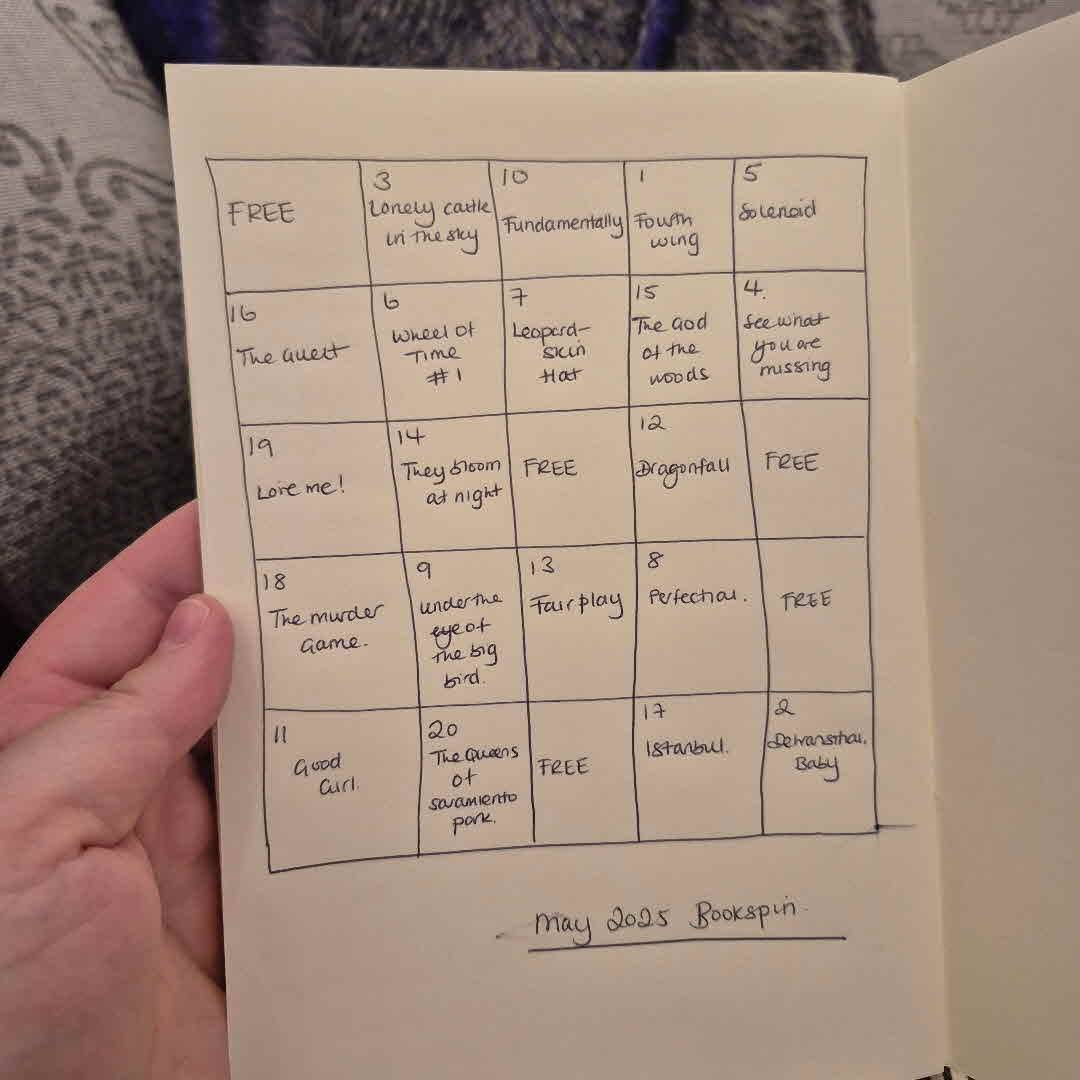 FREE
3
Lonely castle
in the sky
10
Fundamentally
1
Fourth
wing
5
Solenoid
16
The Guest
6
Wheel of
Time
#1
7
Leopard-
skin
Hat
15
The God
of the
woods
4.
See what
you are
missing
19
Love me!
14
They bloom
at night
FREE
12
Dragonfall
FREE
18
The murder
Game.
9
under the
eye of
the big
bird.
13
Fair play
8
Perfection.
FREE
11
Good
Girl.
20
The Queens
of
Saramiento
park.
FREE
17
Istanbul.
2
Baby
May 2025 Bookspin